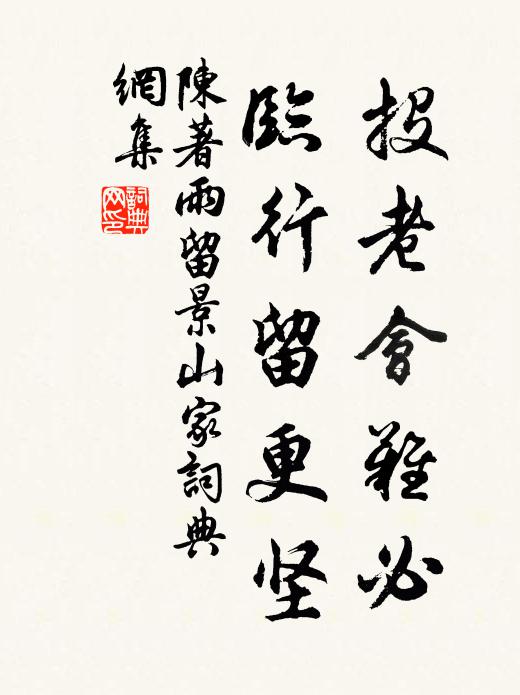 投老會難必
臨行留更坚
陳著雨留景山家詞典
網集
詞典
网印